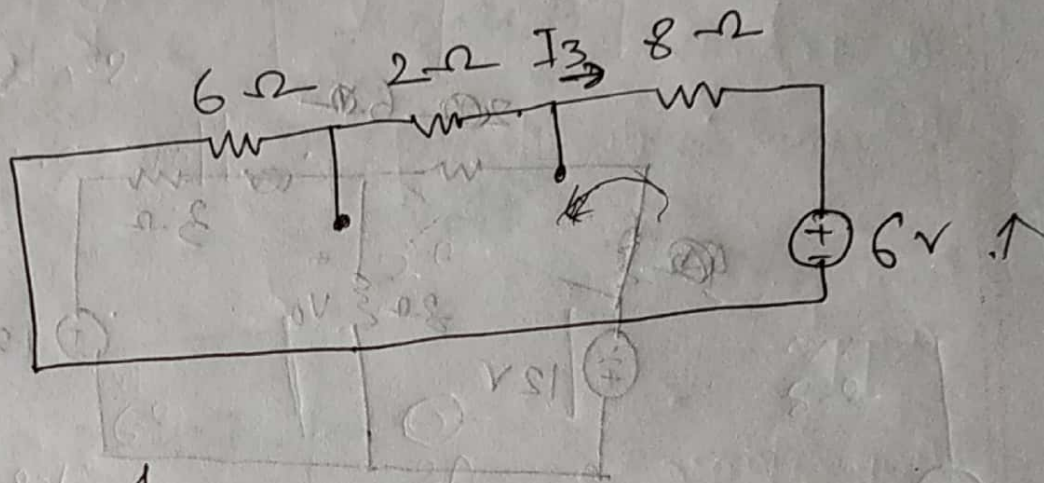 6 Ω 2 Ω I3 → 8 Ω
+
-
6 v ↑